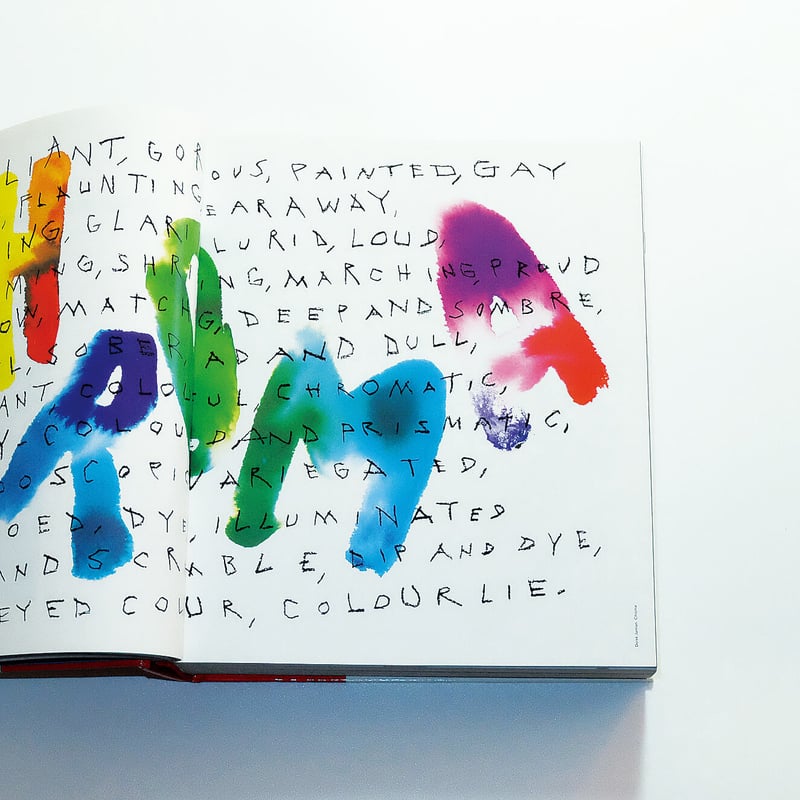 LIANT, GOR OUS, PAINTED, GAY
FLAUNTING EARAWAY,
ING, GLARI LURID, LOUD,
MING, SHRI ING, MARCHING, PROUD
OW, MATCH G, DEEP AND SOMBRE,
L, SOBER, AD AND DULL,
ANT, COLOU UL CHROMATIC,
Y-COLOU D AND PRISMATIC,
OSCOPIC VARIEGATED,
OED, DYE, ILLUMINATED
AND SCR ABLE, DIP AND DYE,
EYED CO UR, COLOUR LIE.
HROMA
Derek Jarman, Chroma